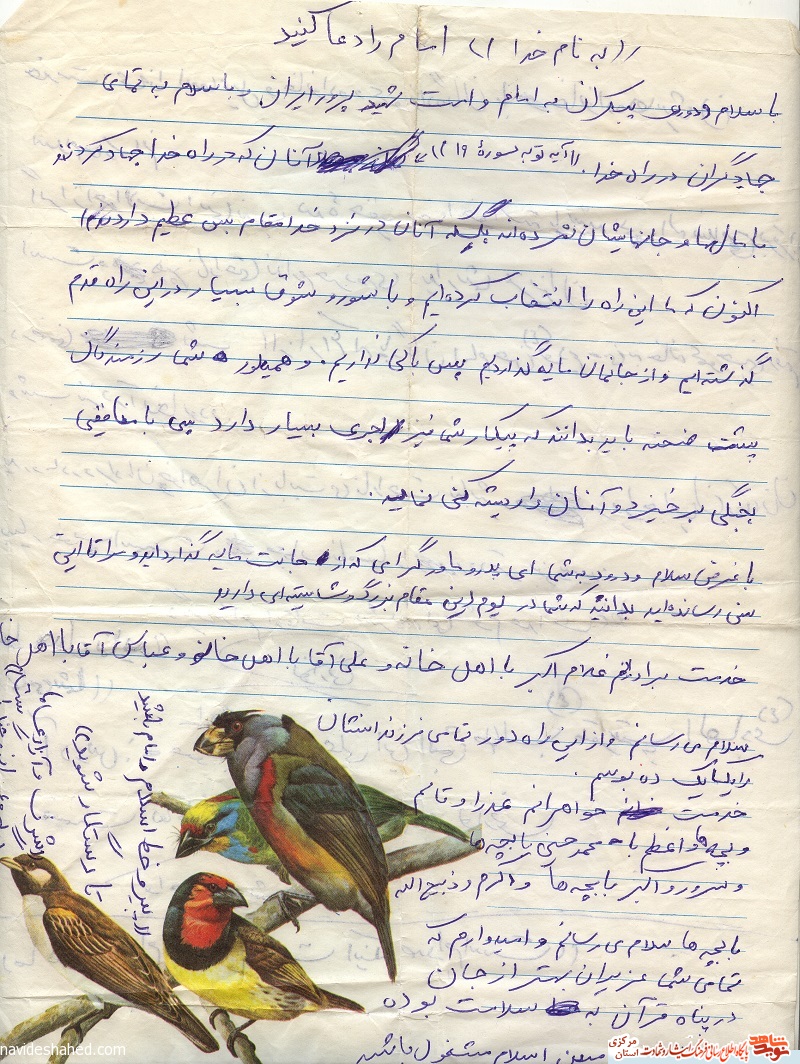 ((به نام خدا)) امام را دعا کنید
با سلام و درود بیکران به امام و امت شهید پرور ایران و با سلام به تمامی
جهادگران در راه خدا. ((آیه توبه سورهٔ ۱۹)) آنان که در راه خدا جهاد کردند
با مالها و جانهایشان آنان در نزد خدا مقام بس عظیم دارند))
اکنون که ما این راه را انتخاب کرده‌ایم و با شور و شوق بسیار در این راه قدم
گذشته‌ایم و از جانمان مایه گذاردیم پس باکی نداریم. و همینطور شما رزمندگان
پشت صحنه باید بدانند که پیکار شما نیز اجری بسیار دارد پس با منافقین
بجنگی برخیزد و آنان را ریشه کنی نمائید.
با عرض سلام و درود به شما ای پدر و مادر گرامی که از جانت مایه گذارداید و مرا تا این
سن رسانده‌اید بدانید که شما در یوم الدین مقام بزرگ و شایسته‌ای دارید
خدمت برادرانم غلام اکبر با اهل خانه و علی آقا با اهل خانه و عباس آقا با اهل
سلام می رسانم و از این راه دور تمامی فرزندانشان
را یکایک ده بوسم.
خدمت خواهرانم عذرا و قائم
و بچه‌ها و اعظم با محمد حسن با بچه ها
و سرور و اکبر با بچه ها و اکرم و ذبیح الله
با بچه ها سلام می رسانم و امیدوارم که
تمامی شما عزیزان بهتر از جان
در پناه قرآن به سلامت بوده
مبین اسلام مشغول باشید
پیرو خط اسلام و امام باشید
تا رستگار شوید))
navideshahed.com
نوید شاهد
پایگاه اطلاع رسانی فرهنگ ایثار و شهادت
استان مرکزی